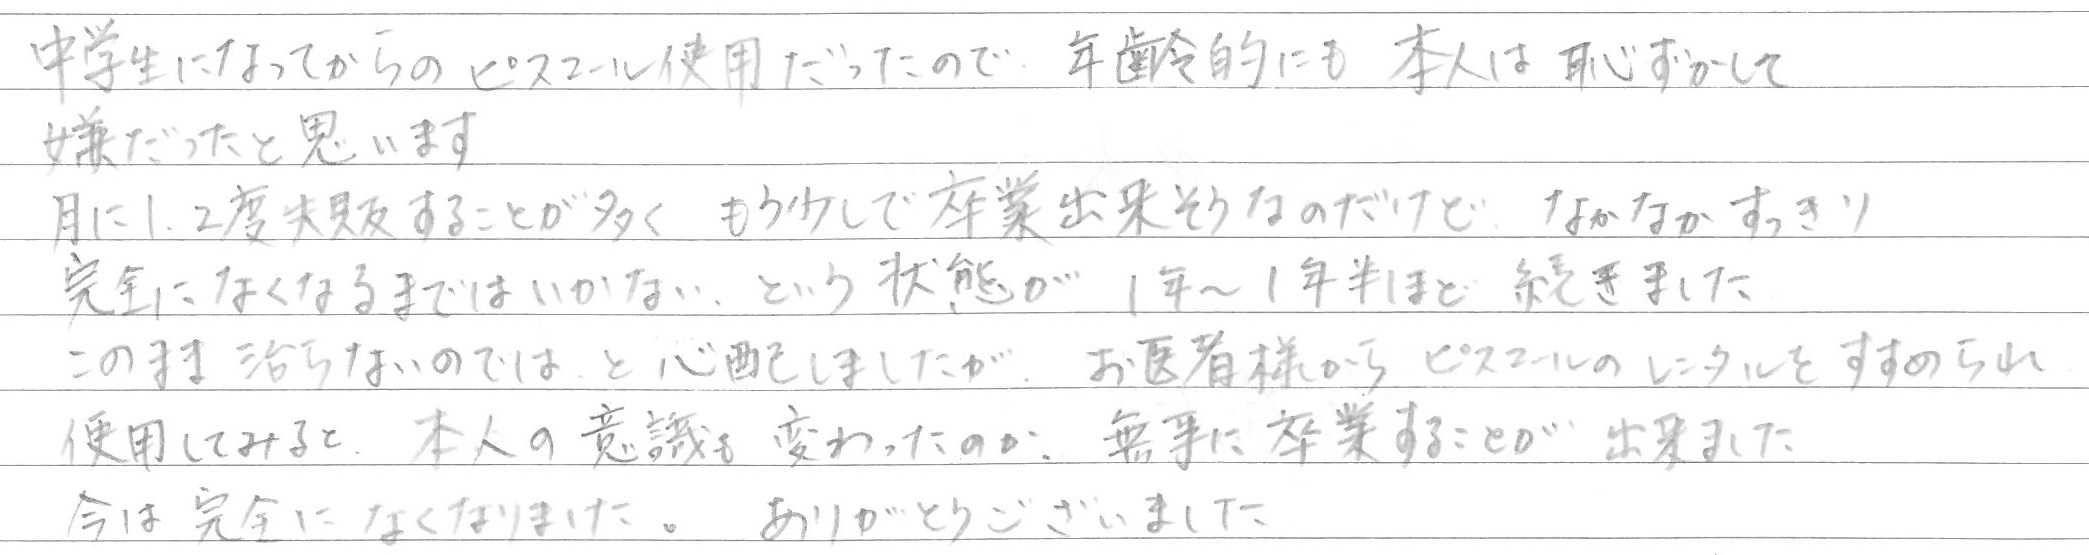 中学生になってからのピスコール使用だったので、年齢的にも 本人は恥ずかしくて
嫌だったと思います
月に1.2度失敗することが多く もう少しで卒業出来そうなのだけど、なかなかすっきり
完全になくなるまではいかない、という状態が 1年〜1年半ほど続きました
このまま治らないのでは、と心配しましたが、お医者様からピスコールのレンタルをすすめられ
使用してみると、本人の意識も変わったのか、無事に卒業することが出来ました
今は完全になくなりました。 ありがとうございました